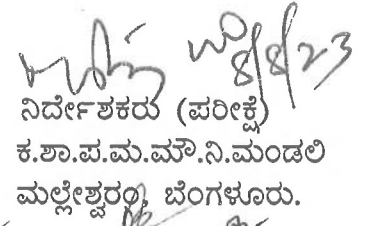 8/8/23
ನಿರ್ದೇಶಕರು (ಪರೀಕ್ಷೆ)
ಕ.ಶಾ.ಪ.ಮ.ಮೌ.ನಿ.ಮಂಡಲಿ
ಮಲ್ಲೇಶ್ವರಂ, ಬೆಂಗಳೂರು.